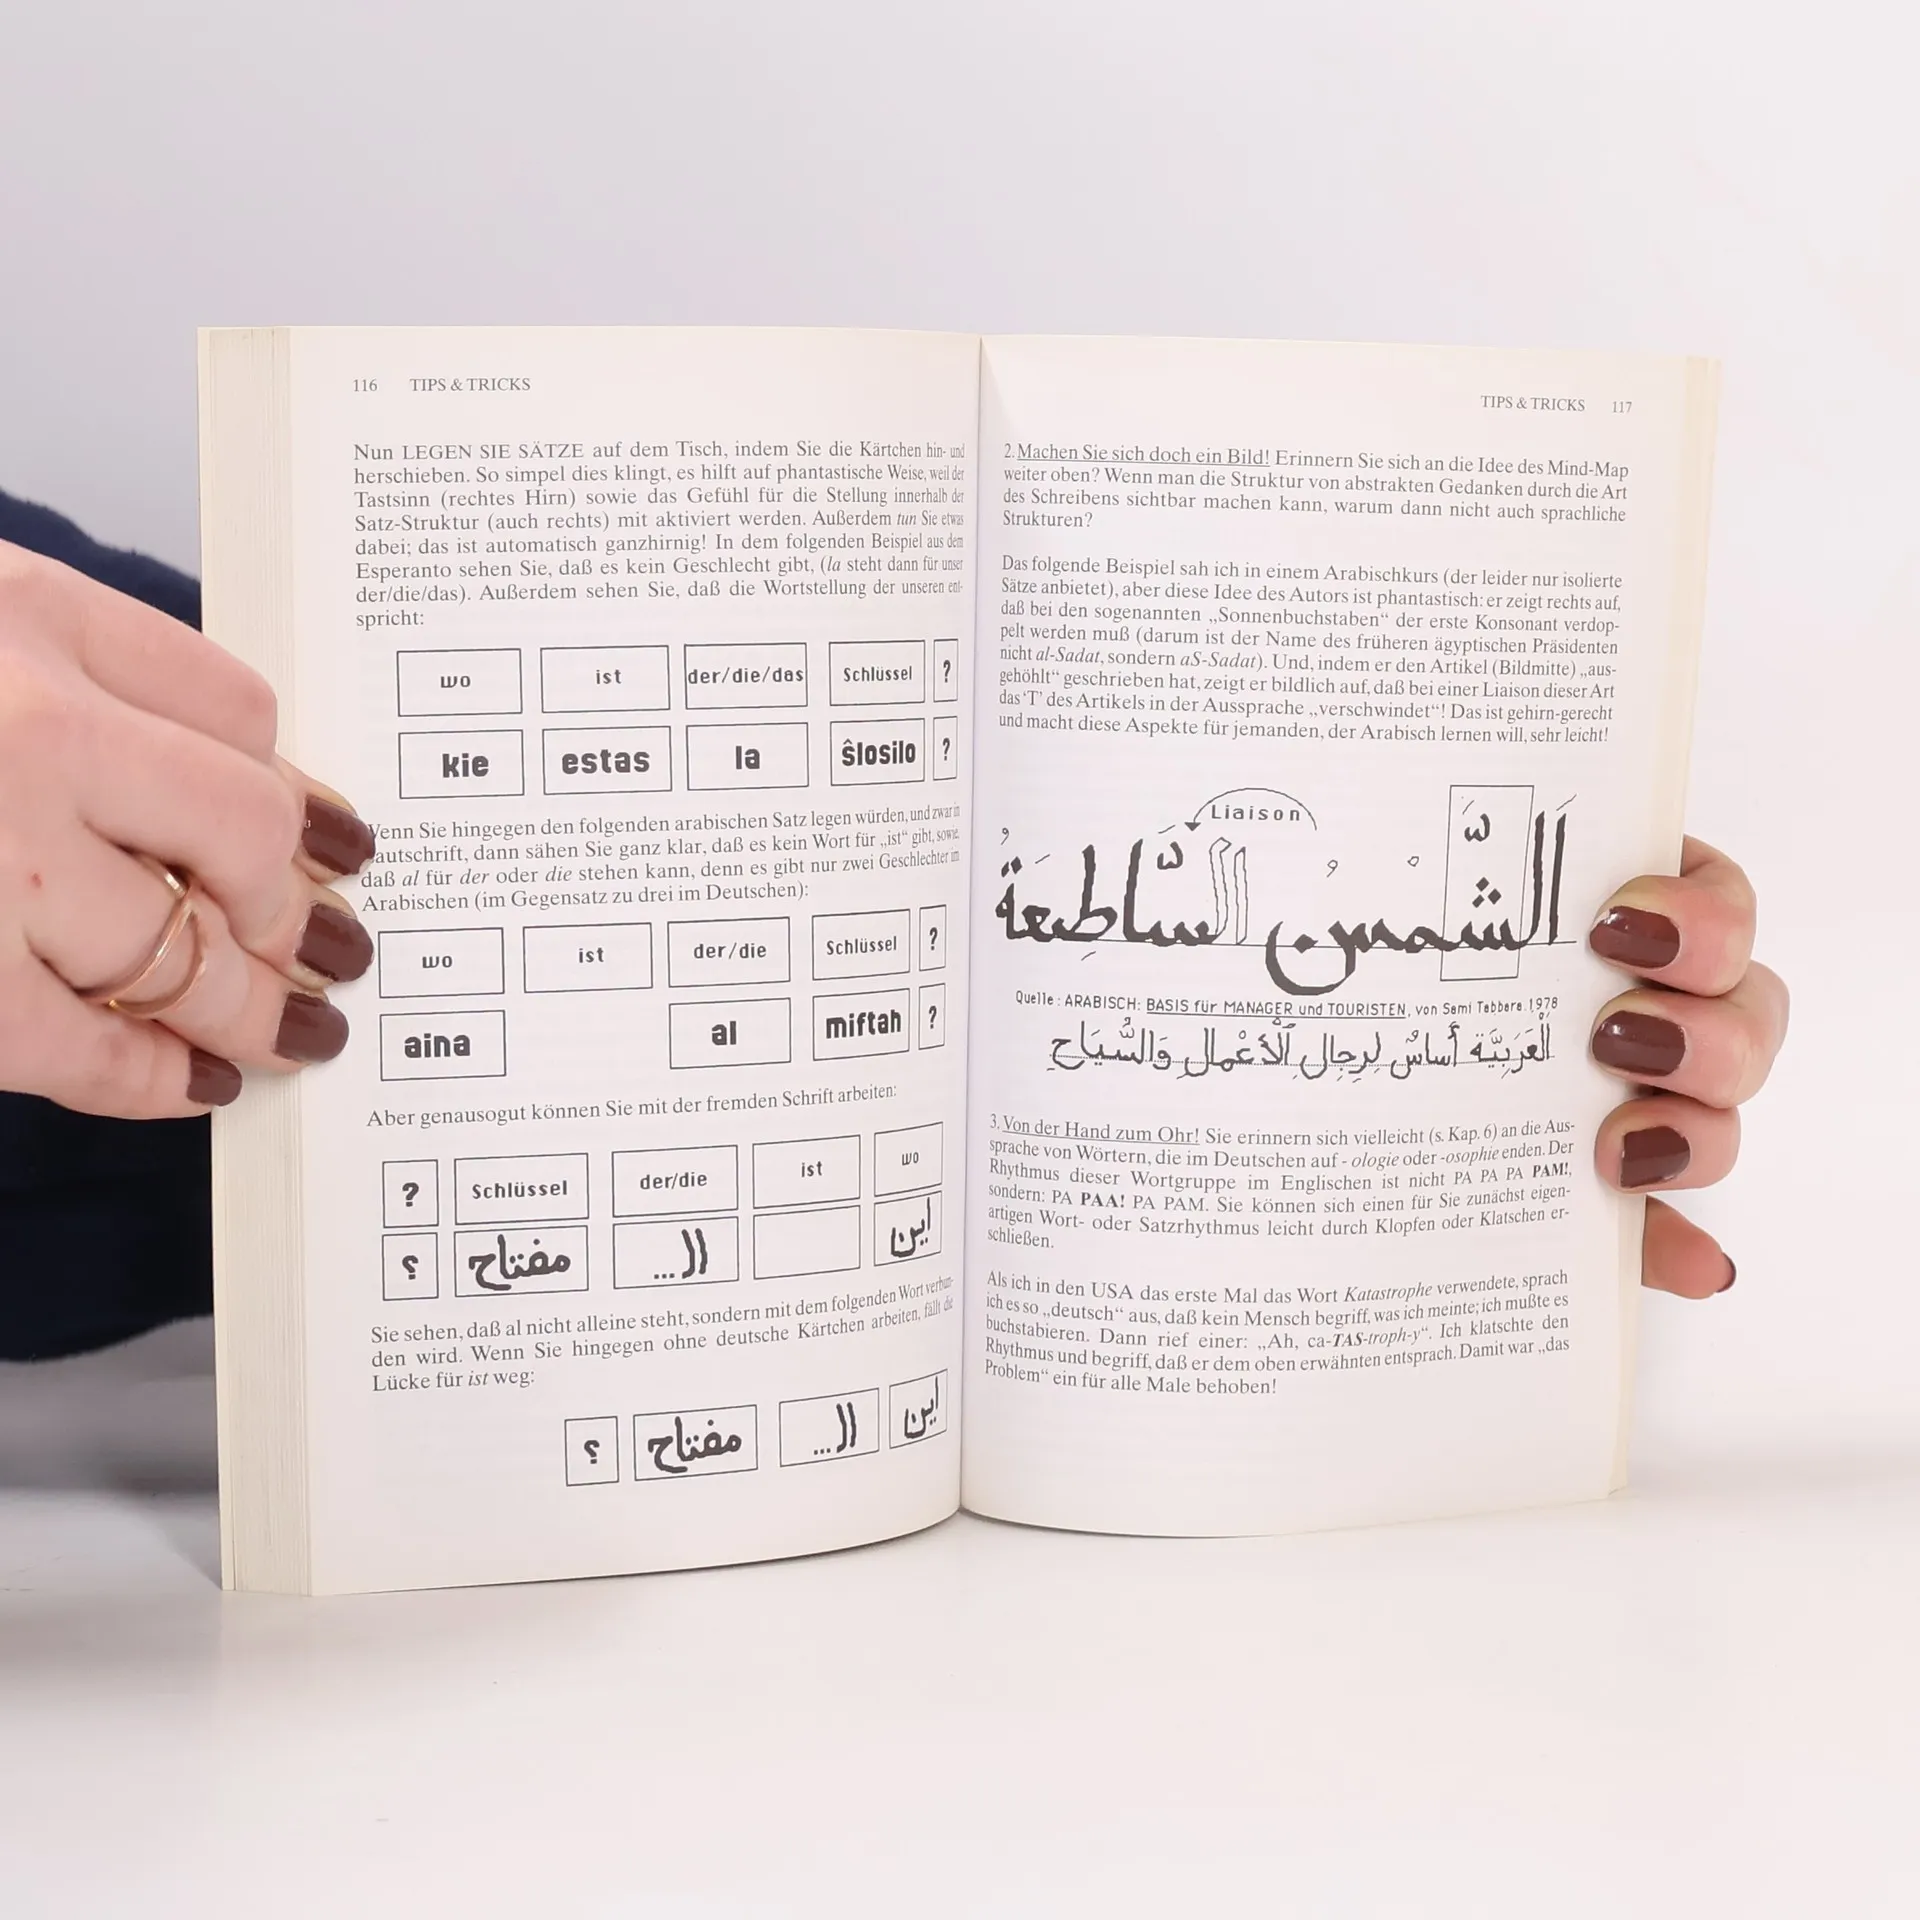 116 TIPS & TRICKS
Nun LEGEN SIE SÄTZE auf dem Tisch, indem Sie die Kärtchen hin- und
herschieben. So simpel dies klingt, es hilft auf phantastische Weise, weil der
Tastsinn (rechtes Hirn) sowie das Gefühl für die Stellung innerhalb der
Satz-Struktur (auch rechts) mit aktiviert werden. Außerdem tun Sie etwas
dabei; das ist automatisch ganzhirnig! In dem folgenden Beispiel aus dem
Esperanto sehen Sie, daß es kein Geschlecht gibt, (la steht dann für unser
der/die/das). Außerdem sehen Sie, daß die Wortstellung der unseren ent-
spricht:
wo ist der/die/das Schlüssel ?
kie estas la ŝlosilo ?
Wenn Sie hingegen den folgenden arabischen Satz legen würden, und zwar in
Lautschrift, dann sähen Sie ganz klar, daß es kein Wort für „ist“ gibt, sowie,
daß al für der oder die stehen kann, denn es gibt nur zwei Geschlechter im
Arabischen (im Gegensatz zu drei im Deutschen):
wo ist der/die Schlüssel ?
aina al miftah ?
Aber genausogut können Sie mit der fremden Schrift arbeiten:
? Schlüssel der/die ist wo
اين ال... مفتاح ؟
Sie sehen, daß al nicht alleine steht, sondern mit dem folgenden Wort verbun-
den wird. Wenn Sie hingegen ohne deutsche Kärtchen arbeiten, fällt die
Lücke für ist weg:
اين ال... مفتاح ؟
TIPS & TRICKS 117
2. Machen Sie sich doch ein Bild! Erinnern Sie sich an die Idee des Mind-Map
weiter oben? Wenn man die Struktur von abstrakten Gedanken durch die Art
des Schreibens sichtbar machen kann, warum dann nicht auch sprachliche
Strukturen?
Das folgende Beispiel sah ich in einem Arabischkurs (der leider nur isolierte
Sätze anbietet), aber diese Idee des Autors ist phantastisch: er zeigt rechts auf,
daß bei den sogenannten „Sonnenbuchstaben“ der erste Konsonant verdop-
pelt werden muß (darum ist der Name des früheren ägyptischen Präsidenten
nicht al-Sadat, sondern aS-Sadat). Und, indem er den Artikel (Bildmitte) „aus-
gehöhlt“ geschrieben hat, zeigt er bildlich auf, daß bei einer Liaison dieser Art
das 'l' des Artikels in der Aussprache „verschwindet“! Das ist gehirn-gerecht
und macht diese Aspekte für jemanden, der Arabisch lernen will, sehr leicht!
Liaison
الشَّمْسُ السَّاطِعَةُ
Quelle: ARABISCH: BASIS für MANAGER und TOURISTEN, von Sami Tabbara, 1978
الْعَرَبِيَّةُ أَسَاسٌ لِرِجالِ ٱلْأَعْمالِ وَالسُّيّاحِ
3. Von der Hand zum Ohr! Sie erinnern sich vielleicht (s. Kap. 6) an die Aus-
sprache von Wörtern, die im Deutschen auf - ologie oder -osophie enden. Der
Rhythmus dieser Wortgruppe im Englischen ist nicht PA PA PA PAM!,
sondern: PA PAA! PA PAM. Sie können sich einen für Sie zunächst eigen-
artigen Wort- oder Satzrhythmus leicht durch Klopfen oder Klatschen er-
schließen.
Als ich in den USA das erste Mal das Wort Katastrophe verwendete, sprach
ich es so „deutsch“ aus, daß kein Mensch begriff, was ich meinte; ich mußte es
buchstabieren. Dann rief einer: „Ah, ca-TAS-troph-y“. Ich klatschte den
Rhythmus und begriff, daß er dem oben erwähnten entsprach. Damit war „das
Problem“ ein für alle Male behoben!